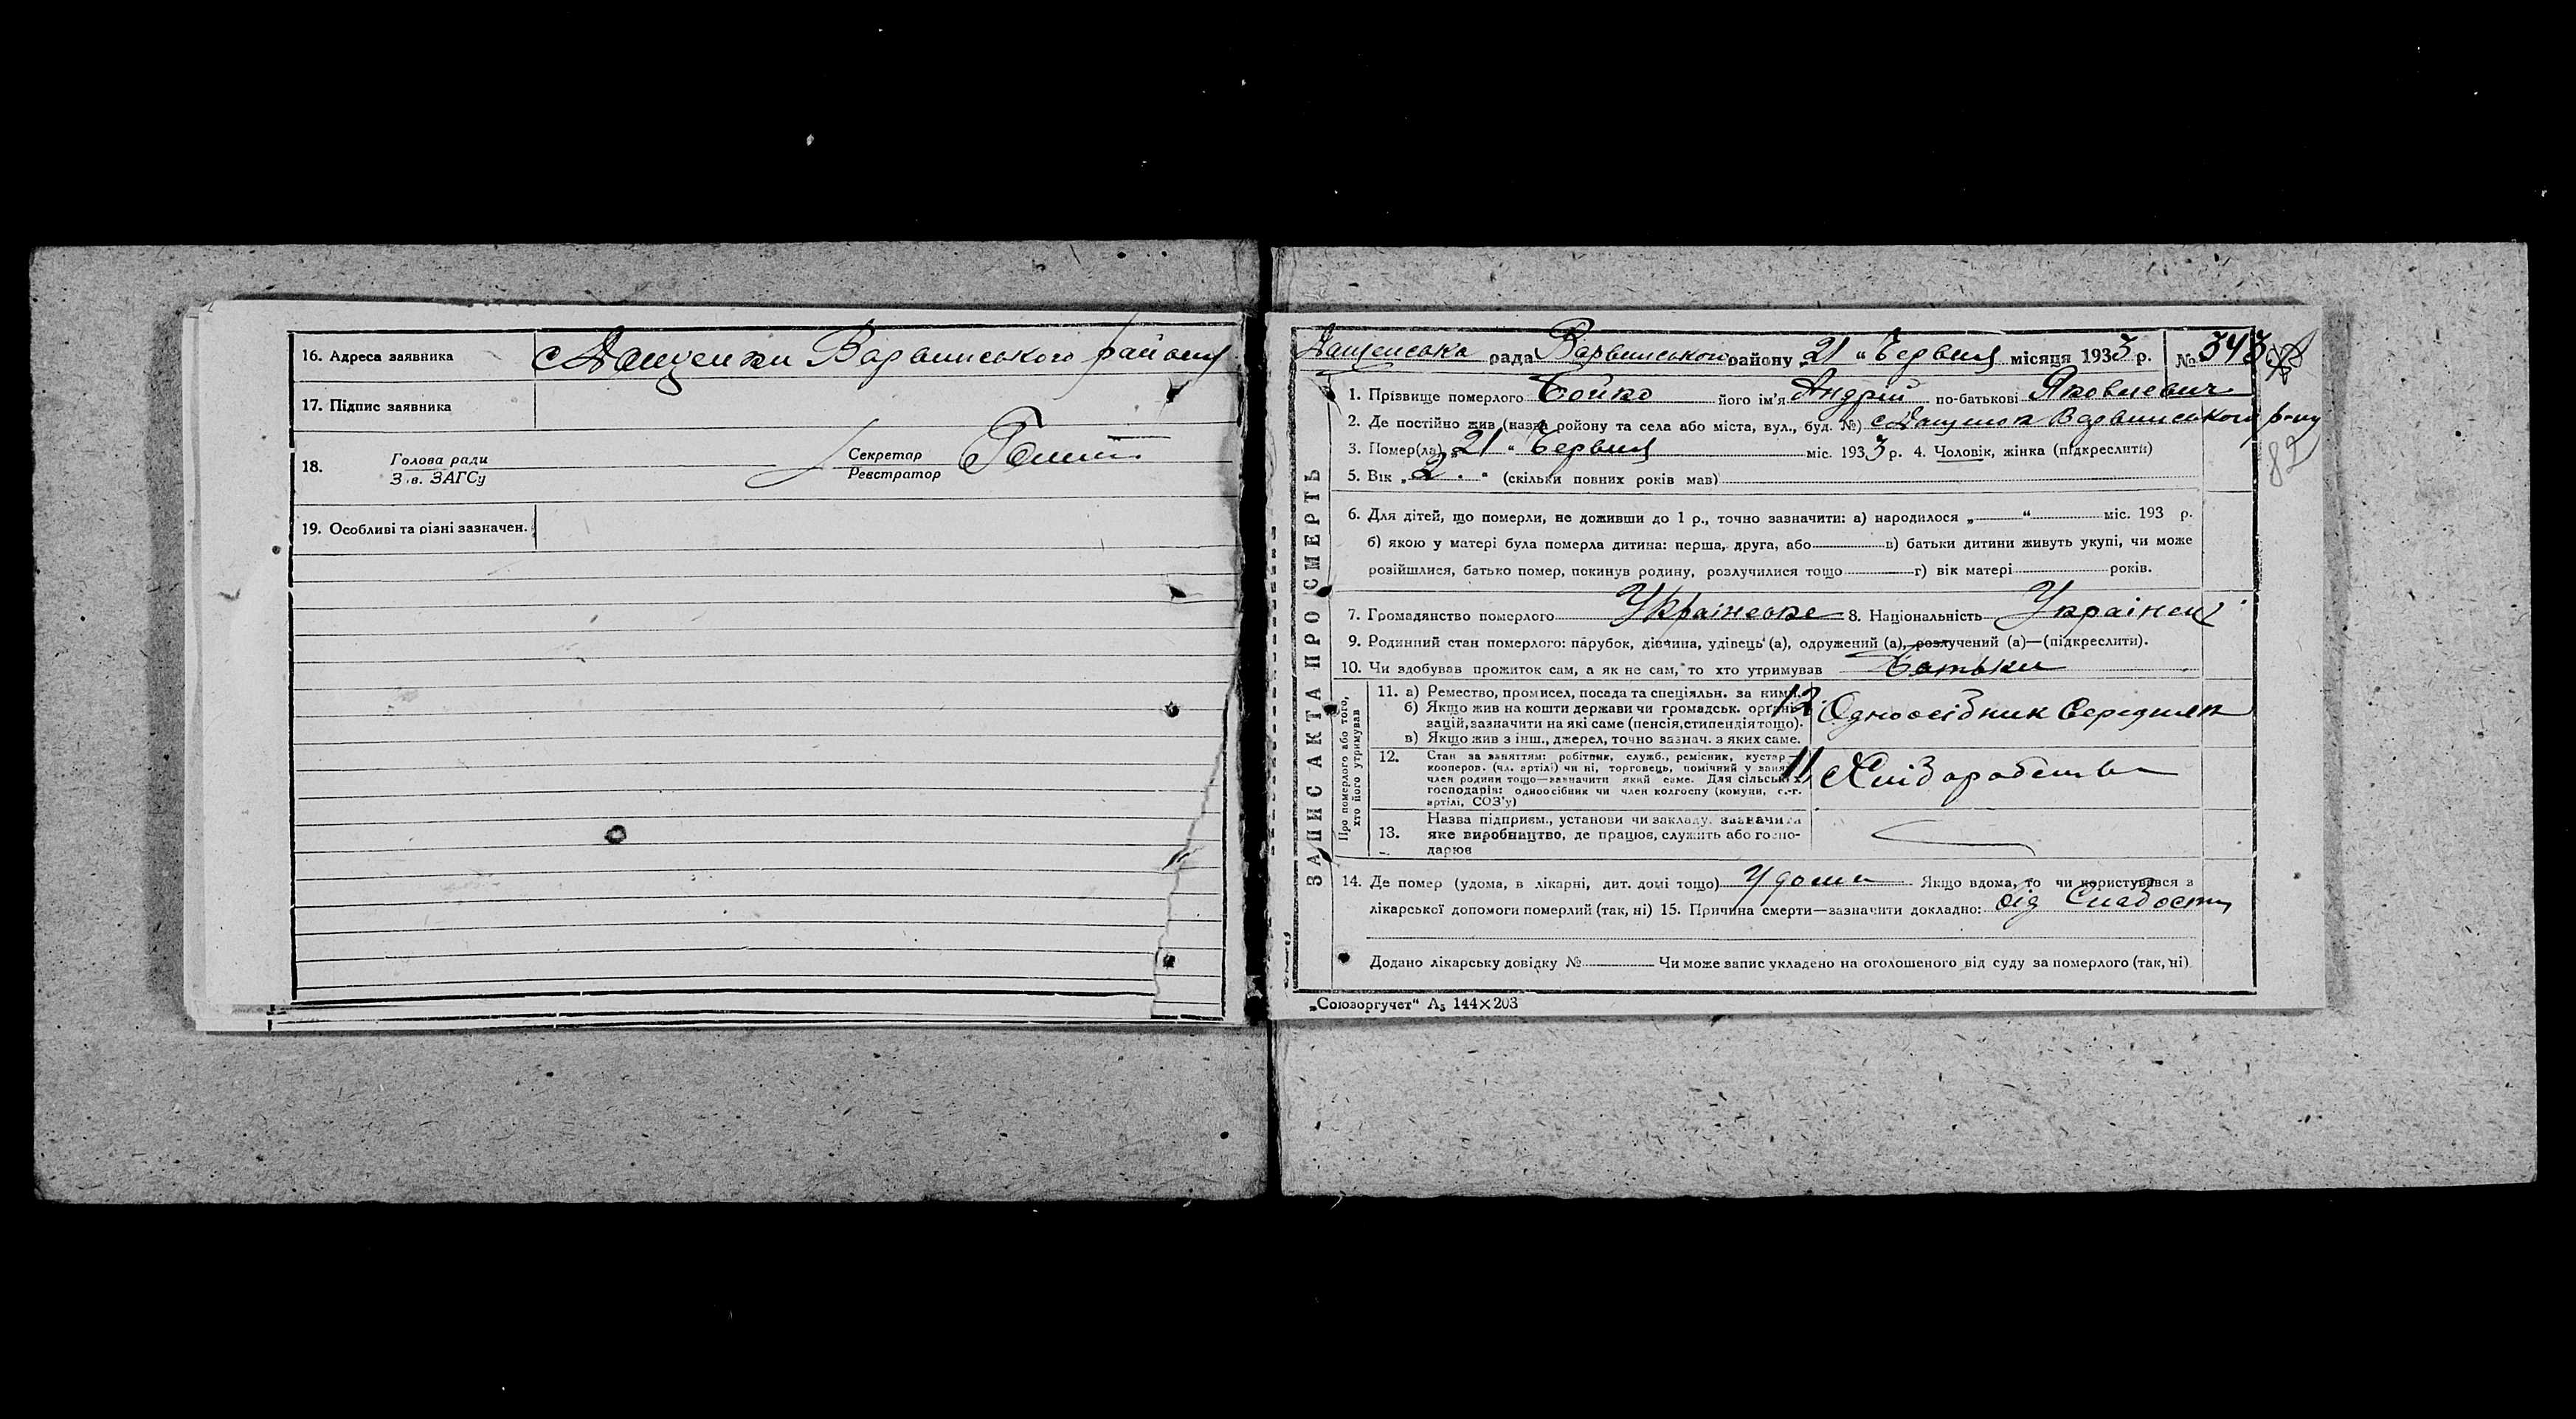 16. Адреса заявника с Дащенки Варвинського району
17. Підпис заявника
18. Голова ради Секретар
З.в. ЗАГСу Реєстратор
19. Особливі та різні зазначен.
Дащенська рада Варвинського району „21 " Червня місяця 1933 р. № 343
1. Прізвище померлого Бойко його ім'я Андрій по-батькові Яковлевич
2. Де постійно жив (назва району та села або міста, вул., буд. №) с Дащенки Варвинського р-ну
82
3. Помер(ла) „21 " Червня міс. 1933 р. 4. Чоловік, жінка (підкреслити)
5. Вік „ 2 . " (скільки повних років мав)
6. Для дітей, що померли, не доживши до 1 р., точно зазначити: а) народилося „ " міс. 193 р.
б) якою у матері була померла дитина: перша, друга, або в) батьки дитини живуть укупі, чи може
розійшлися, батько помер, покинув родину, розлучилися тощо г) вік матері років.
7. Громадянство померлого Українське 8. Національність Українец
9. Родинний стан померлого: парубок, дівчина, удівець (а), одружений (а), розлучений (а)—(підкреслити).
10. Чи здобував прожиток сам, а як не сам, то хто утримував Батьки
ЗАПИС АКТА ПРО СМЕРТЬ
Про померлого або того,
хто його утримував
11. а) Ремество, промисел, посада та спеціяльн. за ними.
б) Якщо жив на кошти держави чи громадськ. органі-
зацій, зазначити на які саме (пенсія, стипендія тощо).
в) Якщо жив з інш., джерел, точно зазнач. з яких саме.
12 Одноосібник Середняк
12. Стан за заняттям: робітник, служб., ремісник, кустар-
кооперов. (чл. артілі) чи ні, торговець, помічний у занят.
член родини тощо—зазначити який саме. Для сільських
господарів: одноосібник чи член колгоспу (комуни, с.-г.
артілі, СОЗ'у)
11 Хліборобство
13. Назва підприєм., установи чи закладу, зазначити
яке виробництво, де працює, служить або госпо-
дарює
14. Де помер (удома, в лікарні, дит. домі тощо) Удома Якщо вдома, то чи користувався з
лікарської допомоги померлий (так, ні) 15. Причина смерти—зазначити докладно: від Слабости
Додано лікарську довідку № Чи може запис укладено на оголошеного від суду за померлого (так, ні)
„Союзоргучет" А₅ 144×203